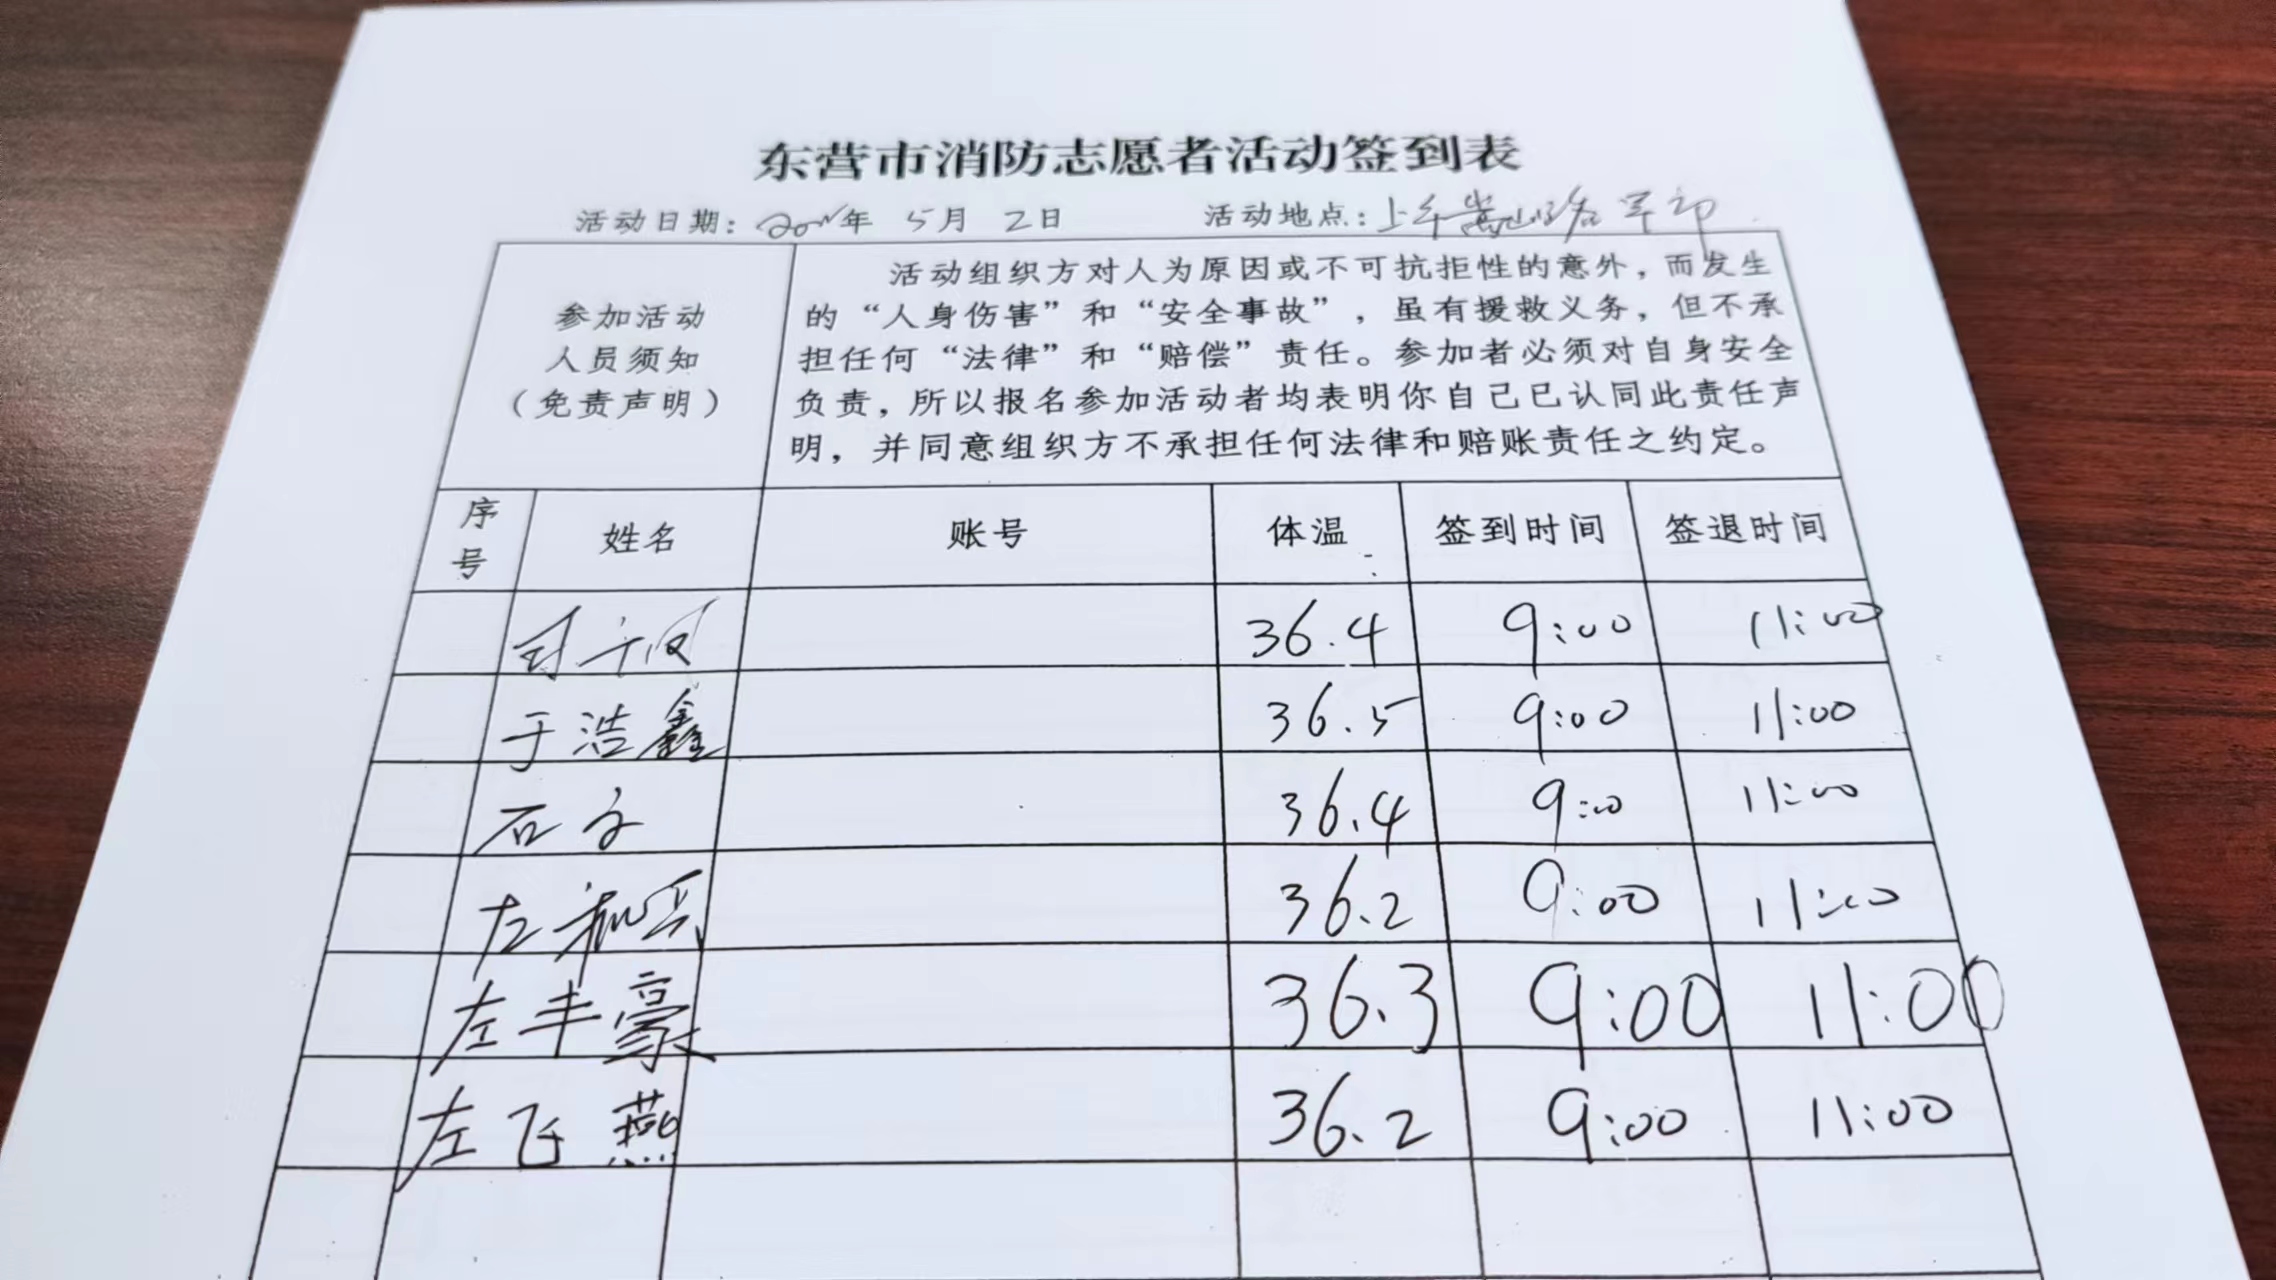 东营市消防志愿者活动签到表
活动日期: 年 5月 2日 活动地点:
参加活动
人员须知
(免责声明)
活动组织方对人为原因或不可抗拒性的意外,而发生
的“人身伤害”和“安全事故”,虽有援救义务,但不承
担任何“法律”和“赔偿”责任。参加者必须对自身安全
负责,所以报名参加活动者均表明你自己已认同此责任声
明,并同意组织方不承担任何法律和赔账责任之约定。
序号 姓名 账号 体温 签到时间 签退时间
36.4 9:00 11:00
于浩鑫 36.5 9:00 11:00
石 36.4 9:00 11:00
左 36.2 9:00 11:00
左丰豪 36.3 9:00 11:00
左飞燕 36.2 9:00 11:00